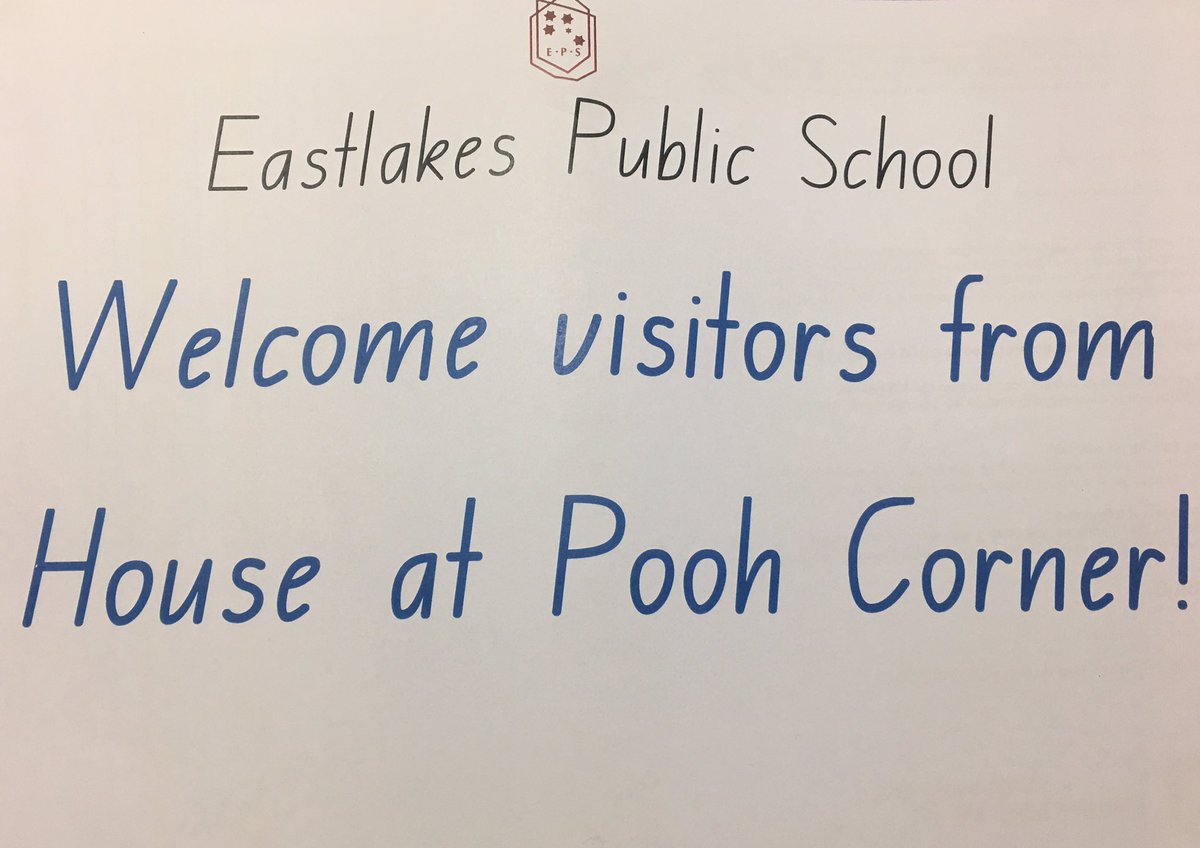 E·P·S
Eastlakes Public School
Welcome visitors from
House at Pooh Corner!